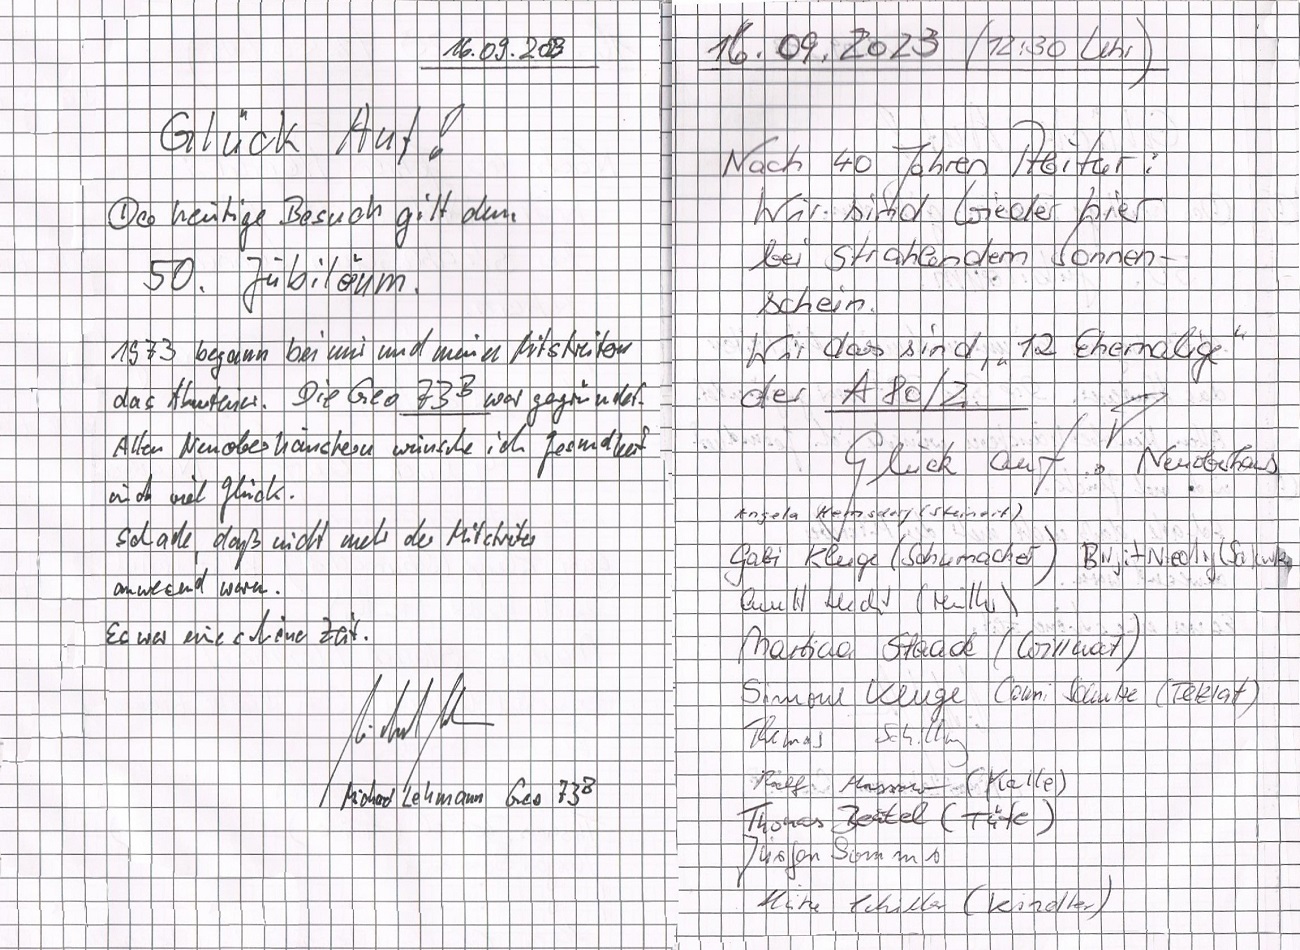 16.09.2023
Glück Auf!
Der heutige Besuch gilt dem
50. Jubiläum.
1973 begann bei mir und meinen Mitstreitern
das Abenteuer. Die Geo 73B war gegründet.
Allen Neuoberhäusern wünsche ich Gesundheit
und viel Glück.
Schade, daß nicht mehr der Mitstreiter
anwesend waren.
Es war eine schöne Zeit.
Michael Lehmann Geo 73B
16.09.2023 (12:30 Uhr)
Nach 40 Jahren Abitur:
Wir sind wieder hier
bei strahlendem Sonnen-
schein.
Wir das sind, „12 Ehemalige“
der A 80/2.
Glück auf! Neuoberhaus
Angela (Steinert)
Gabi Kluge (Schumacher) Birgit
Martina Staack
Simone Kluge Conni Schulze (Teklat)
Thomas Schilling
Ralf (Kalle)
Thomas Beutel (Tüte)
Jürgen
Schiller (Kindler)